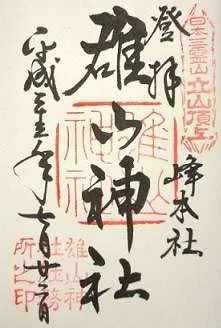 日本三霊山
立山頂上
登拝
峰本社
雄山神社
雄山神社
平成二十五年七月廿二日
雄山神
社社務
所之印